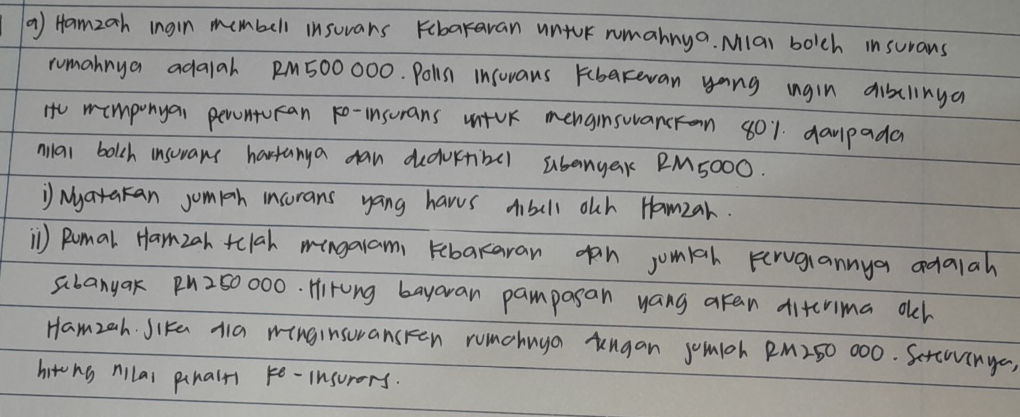 a) Hamzah ingin membeli insurans kebakaran untuk rumahnya. Nilai boleh insurans
rumahnya adalah RM500 000. Polisi insurans kebakaran yang ingin dibelinya
itu mempunyai peruntukan ko-insurans untuk menginsuranskan 80% daripada
nilai boleh insurans hartanya dan deduktibel sebanyak RM5000.
i) Nyatakan jumlah insurans yang harus dibeli oleh Hamzah.
ii) Rumah Hamzah telah mengalami kebakaran dan jumlah kerugiannya adalah
sebanyak RM250 000. Hitung bayaran pampasan yang akan diterima oleh
Hamzah. Jika dia menginsuranskan rumahnya dengan jumlah RM250 000. Seterusnya,
hitung nilai penalti ko-insurans.